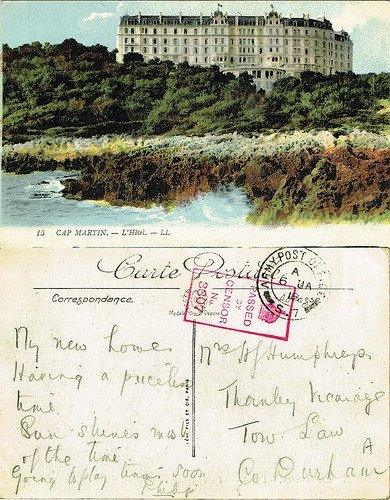 15 CAP MARTIN. — L'Hôtel. — LL.
Carte Postale
Correspondance
ARMY POST OFFICE
A
6 JA
S. 7
PASSED
BY
CENSOR
No.
3807
My new home
Having a priceless
time.
Sun shines most
of the time.
Going to play tennis soon
Philip
LÉVY FILS ET CIE, PARIS
Mrs H J Humphreys
Thornley Vicarage
Tow Law
Co. Durham
A